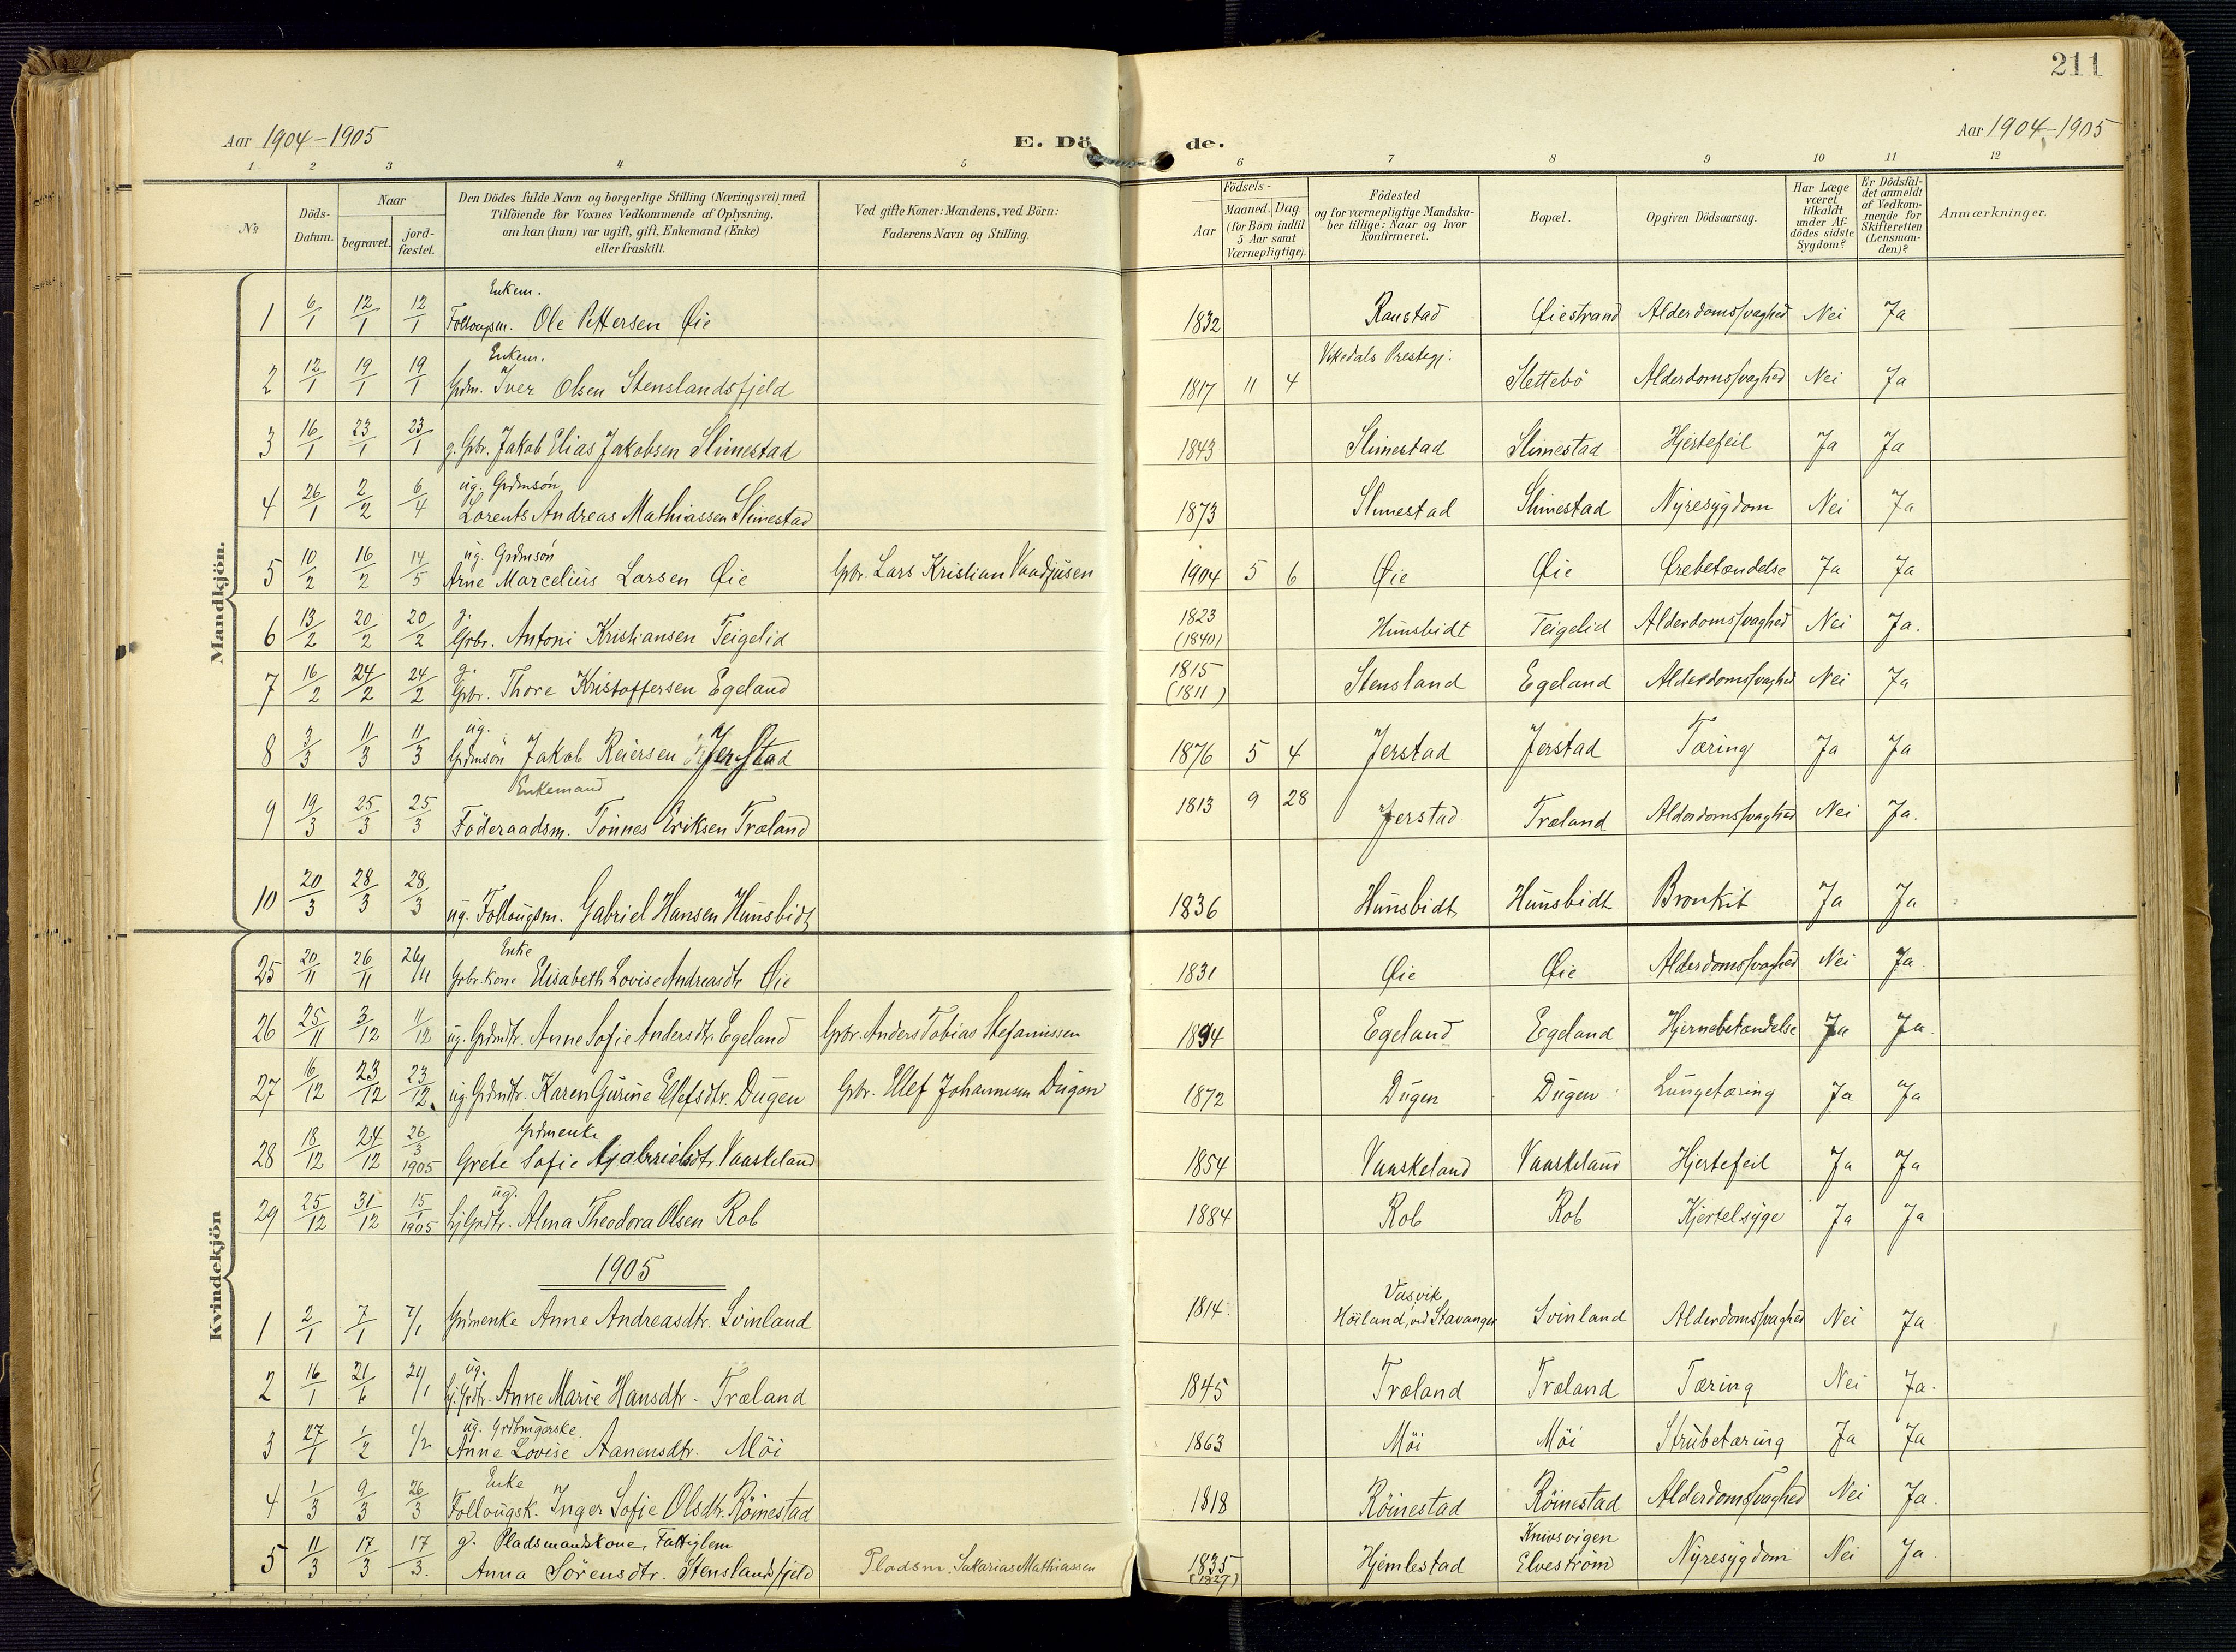 211
Aar 1904-1905 E. Dö de. Aar 1904-1905
1 2 3 4 5 6 7 8 9 10 11 12
No
Döds-Datum.
Naar
begravet.
jord-fæstet.
Den Dödes fulde Navn og borgerlige Stilling (Næringsvei) med
Tilföiende for Voxnes Vedkommende af Oplysning,
om han (hun) var ugift, gift, Enkemand (Enke)
eller fraskilt.
Ved gifte Koner: Mandens, ved Börn:
Faderens Navn og Stilling.
Födsels-
Aar
Maaned. Dag.
(for Börn indtil
5 Aar samt
Værnepligtige).
Födested
og for værnepligtige Mandska-
ber tillige: Naar og hvor
konfirmeret.
Bopæl.
Opgiven Dödsaarsag.
Har Læge
været
tilkaldt
under Af-
dödes sidste
Sygdom?
Er Dödsfal-
det anmeldt
af Vedkom-
mende for
Skifteretten
(Lensman-
den)?
Anmærkninger.
Mandkjön.
Enkem.
1 6/1 12/1 12/1 Follougsm. Ole Pettersen Øie 1832 Raustad Øiestrand Alderdomssvaghed Nei Ja
Enkem. Vikedals Prestegj.
2 12/1 19/1 19/1 Grdm. Iver Olsen Stenslandsfjeld 1817 11 4 Slettebö Alderdomssvaghed Nei Ja
3 16/1 23/1 23/1 g. Gbr. Jakob Elias Jakobsen Slimestad 1843 Slimestad Slimestad Hjertefeil Ja Ja
ug. Grdmsön
4 26/1 2/2 6/4 Lorents Andreas Mathiassen Slimestad 1873 Slimestad Slimestad Nyresygdom Nei Ja
ug. Grdmsön
5 10/2 16/2 14/5 Arne Marcelius Larsen Øie Gbr. Lars Kristian Vaadjusen 1904 5 6 Øie Øie Ørebetændelse Ja Ja
g. 1823
6 13/2 20/2 20/2 Grbr. Antoni Kristiansen Teigelid (1840) Hunsbidt Teigelid Alderdomssvaghed Nei Ja.
g. 1815
7 16/2 24/2 24/2 Gbr. Thore Kristoffersen Egeland (1811) Stensland Egeland Alderdomssvaghed Nei Ja
ug.
8 3/3 11/3 11/3 Grdmsön Jakob Reiersen Jerstad 1876 5 4 Jerstad Jerstad Tæring Ja Ja
Enkemand
9 19/3 25/3 25/3 Föderaadsm. Tönnes Eriksen Træland 1813 9 28 Jerstad Træland Alderdomssvaghed Nei Ja.
10 20/3 28/3 28/3 ug. Follougsm. Gabriel Hansen Hunsbidt 1836 Hunsbidt Hunsbidt Bronkit Ja Ja
Kvindekjön
Enke
25 20/11 26/11 26/11 Grbr.kone Elisabeth Lovise Andreasdtr Øie 1831 Øie Øie Alderdomssvaghed Nei Ja.
26 25/11 3/12 11/12 ug. Grdmdtr. Anne Sofie Andersdtr. Egeland Grbr. Anders Tobias Stefanussen 1894 Egeland Egeland Hjernebetændelse Ja Ja.
27 16/12 23/12 23/12 ug. Grdmdtr. Karen Gurine Ellefsdtr. Dugen Gbr. Ellef Johannesen Dugen 1872 Dugen Dugen Lungetæring Ja Ja
Grdmenke
28 18/12 24/12 26/3 1905 Grete Sofie Gjabrielsdtr. Vaaskeland 1854 Vaaskeland Vaaskeland Hjertefeil Ja Ja
ug.
29 25/12 31/12 15/1 1905 Alma Theodora Olsen Rob 1884 Rob Rob Kjertelsyge Ja Ja
1905
1 2/1 7/1 7/1 Grdmenke Anne Andreasdtr. Svinland 1814. Vasvik Höiland, ved Stavanger Svinland Alderdomssvaghed Nei Ja.
ug.
2 16/1 21/6 21/1 Anne Marie Hansdtr. Træland 1845 Træland Træland Tæring Nei Ja.
ug. Grdbrugerske
3 27/1 1/2 1/2 Anne Lovise Aanensdtr. Möi 1863 Möi Möi Strubetæring Ja Ja
Enke
4 1/3 9/3 26/3 Follougsk. Inger Sofie Olsdtr. Röinestad 1818 Röinestad Röinestad Alderdomssvaghed Nei Ja.
g. Pladsmandskone, Fattiglem Knivsvigen
5 11/3 17/3 17/3. Anna Sörensdtr. Stenslandsfjeld Pladsm. Sakarias Mathiassen 1835 (1827) Hjemlestad Elveström Nyresygdom Nei Ja.